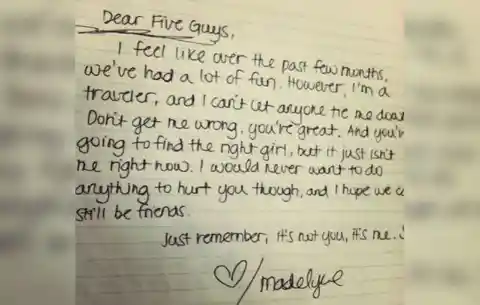 Dear Five Guys,
I feel like over the past few months,
we've had a lot of fun. However, I'm a
traveler, and I can't let anyone tie me
Don't get me wrong, you're great. And
going to find the right girl, but it just isn't
me right now. I would never want to do
anything to hurt you though, and I hope we
still be friends.
Just remember, it's not you, it's me.
♡/madelyne